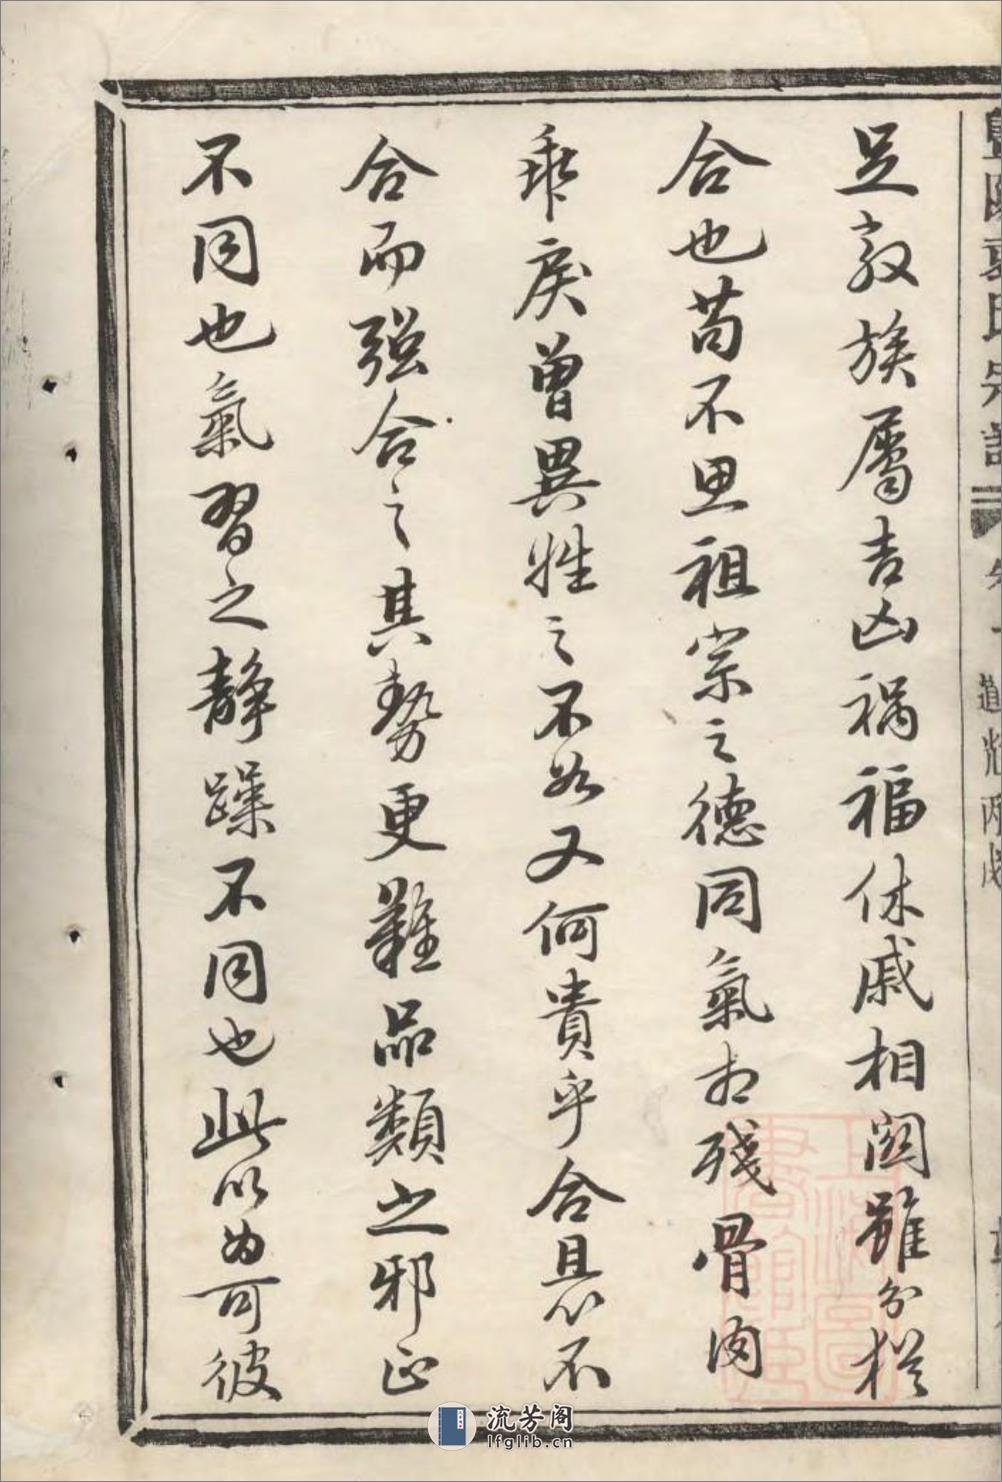 足敦族属吉凶禍福休戚相関雖分猶
合也苟不思祖宗之德同氣相殘骨肉
乖戾曾異姓之不如又何貴乎合且不
合而强合之其勢更難品類之邪正
不同也氣習之靜躁不同也此以為可彼
氏宗譜
道光丙戌
流芳阁
lfglib.cn